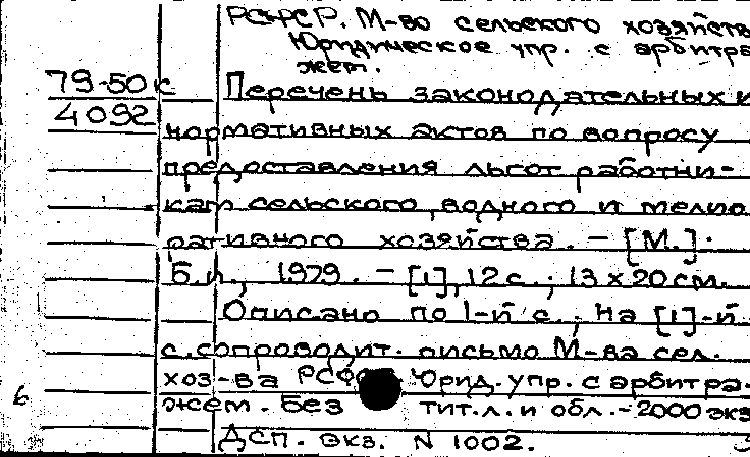 РСФСР. М-во сельского хозяйств
Юридическое упр. с арбитра
жем.
79-50к
4092
Перечень законодательных и
нормативных актов по вопросу
предоставления льгот работни-
кам сельского, водного и мелио
ративного хозяйства. – [М.]:
Б.и., 1979. – [1], 12 с.; 13 х 20 см.
Описано по 1-й с.; на [1]-й
с. сопроводит. письмо М-ва сел.
хоз-ва Юрид. упр. с арбитра-
жем. Без тит. л. и обл. – 2000 экз
ДСП. экз. N 1002.
6